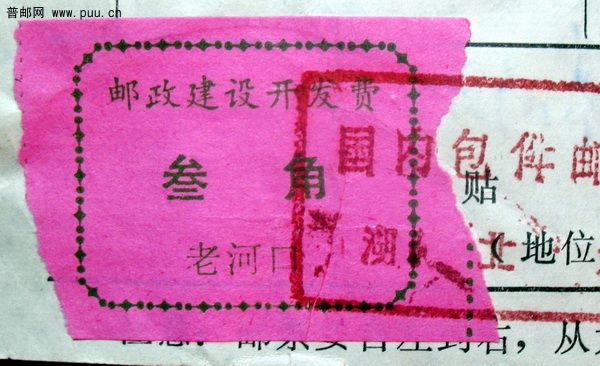 普邮网 www.puu.cn
邮政建设开发费
国内包件邮
叁角
贴
老河口
湖
土
(地位
邮票要自左到右，从